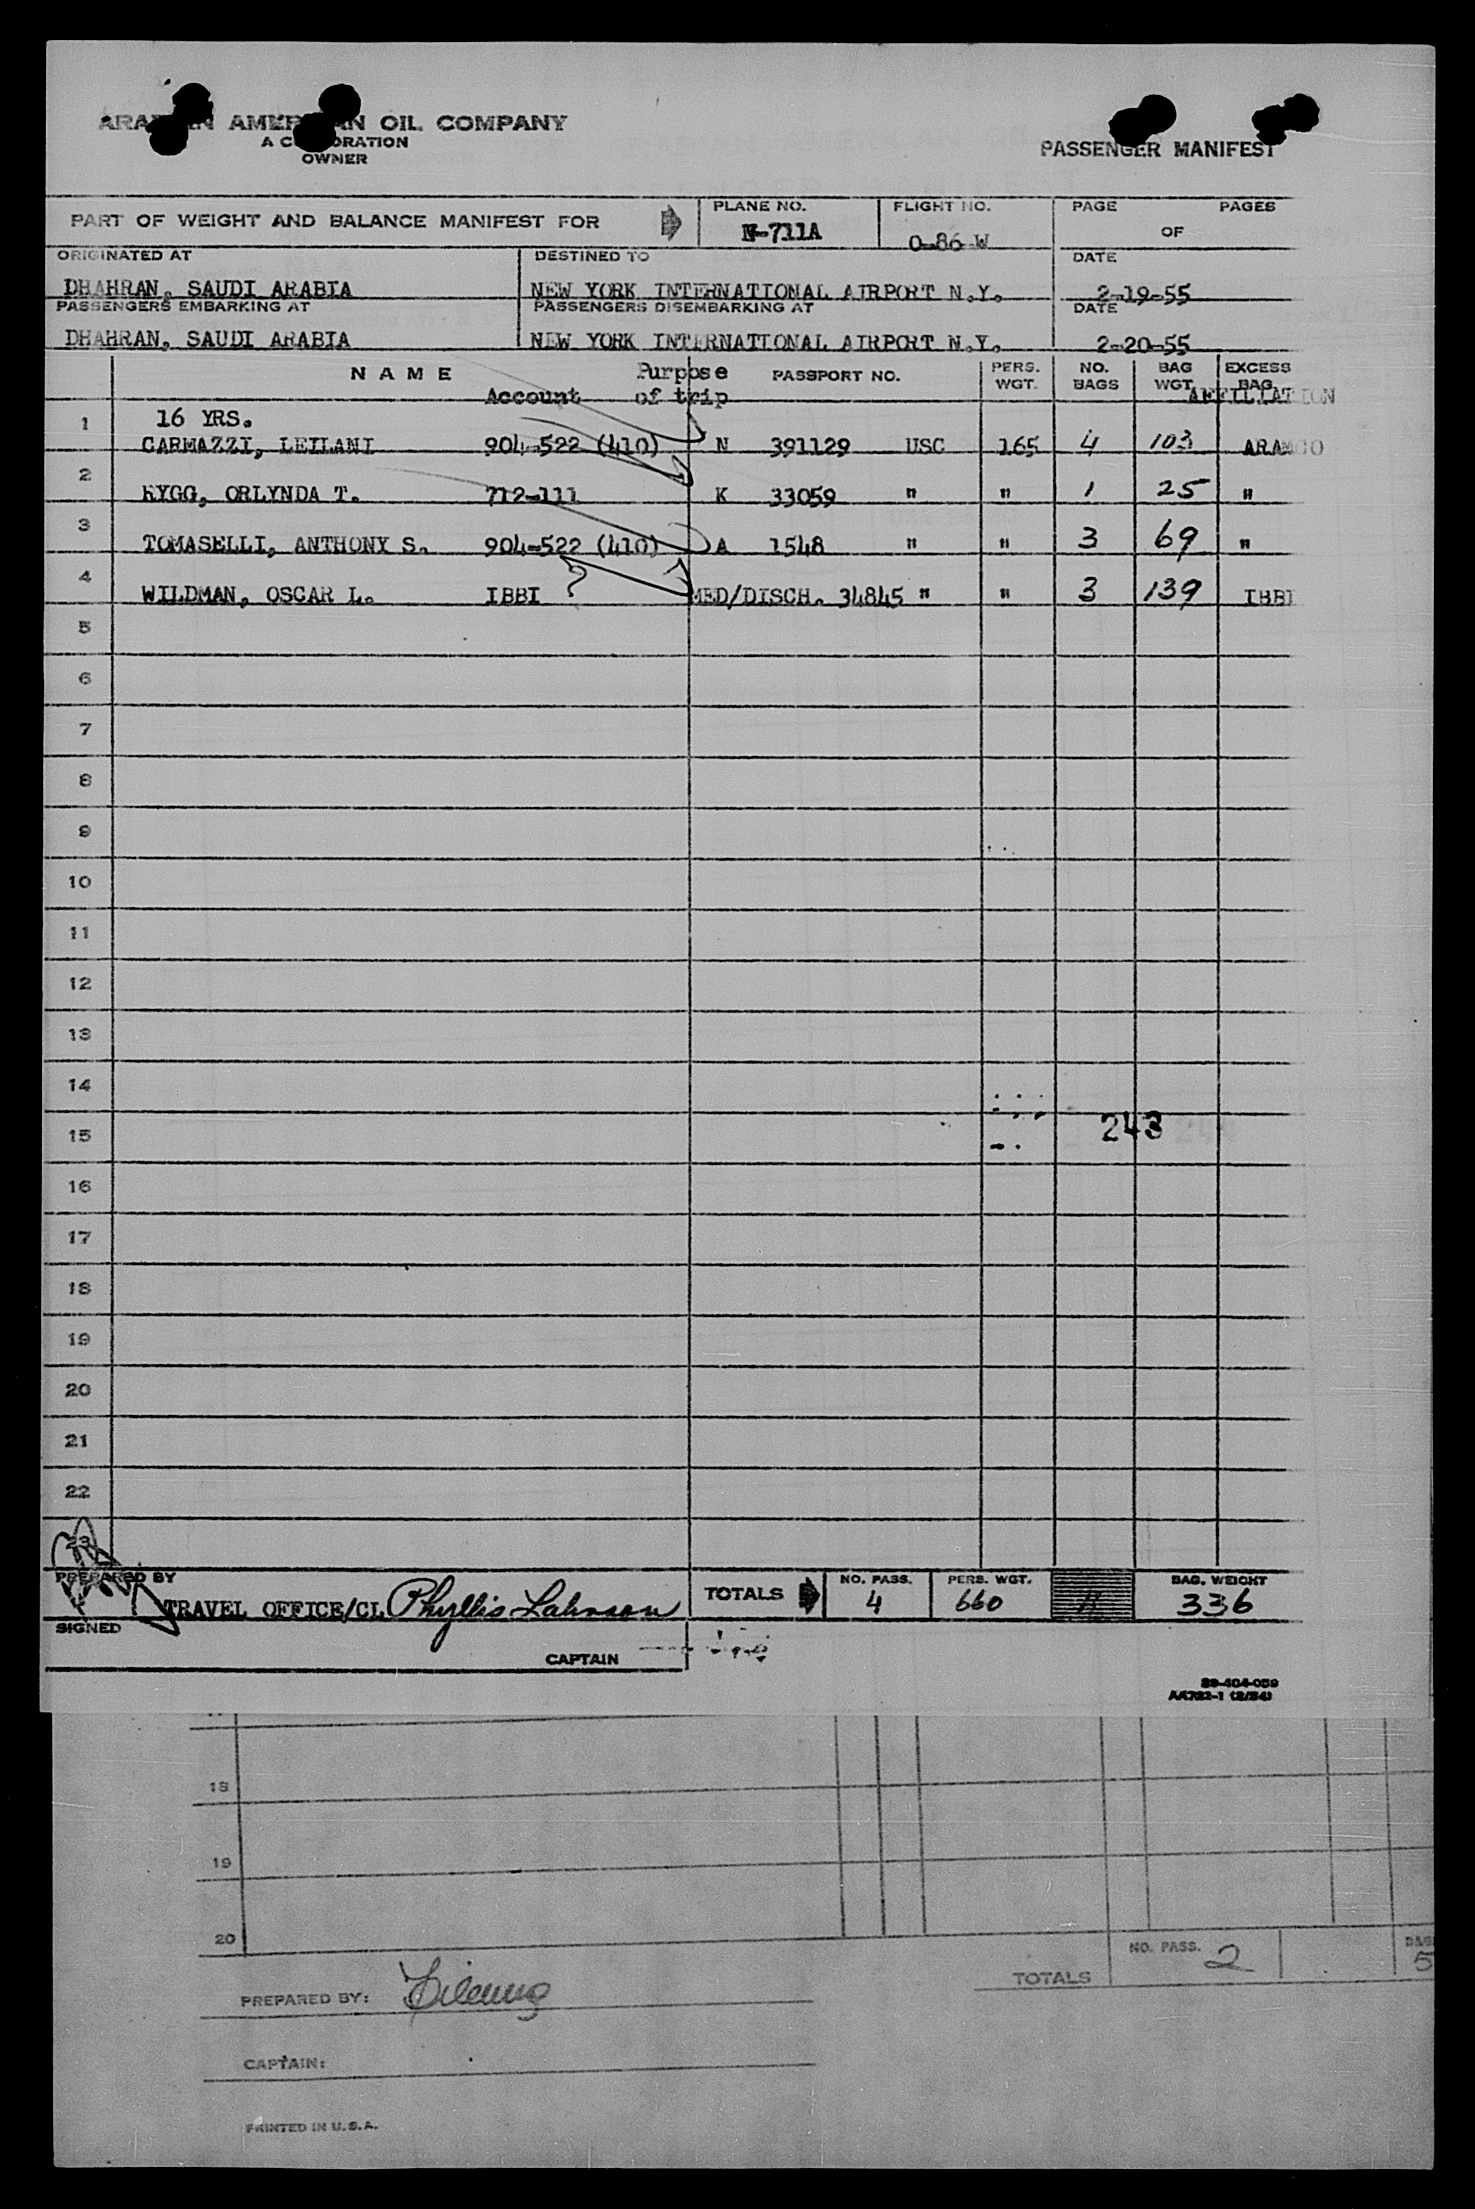 ARABIAN AMERICAN OIL COMPANY
A CORPORATION
OWNER
PASSENGER MANIFEST
PART OF WEIGHT AND BALANCE MANIFEST FOR
PLANE NO.
N-711A
FLIGHT NO.
O-86 W
PAGE OF PAGES
ORIGINATED AT
DHAHRAN, SAUDI ARABIA
DESTINED TO
NEW YORK INTERNATIONAL AIRPORT N.Y.
DATE
2-19-55
PASSENGERS EMBARKING AT
DHAHRAN, SAUDI ARABIA
PASSENGERS DISEMBARKING AT
NEW YORK INTERNATIONAL AIRPORT N.Y.
DATE
2-20-55
NAME Account Purpose of trip PASSPORT NO. PERS. WGT. NO. BAGS BAG WGT. EXCESS BAG. AFFILIATION
16 YRS.
1 CARMAZZI, LEILANI 904-522 (410) N 391129 USC 165 4 103 ARAMCO
2 RYGG, ORLYNDA T. 712-111 K 33059 " " 1 25 "
3 TOMASELLI, ANTHONY S. 904-522 (410) A 1548 " " 3 69 "
4 WILDMAN, OSCAR L. IBBI ? MED/DISCH. 34845 " " 3 139 IBBI
5
6
7
8
9
10
11
12
13
14
15 243
16
17
18
19
20
21
22
23
PREPARED BY
TRAVEL OFFICE/CL Phyllis Lahnson
TOTALS
NO. PASS.
4
PERS. WGT.
660
11
BAG. WEIGHT
336
SIGNED
CAPTAIN
AA722-1 (2/54)
18
19
20
TOTALS
NO. PASS. 2
5
PREPARED BY:
CAPTAIN:
PRINTED IN U.S.A.